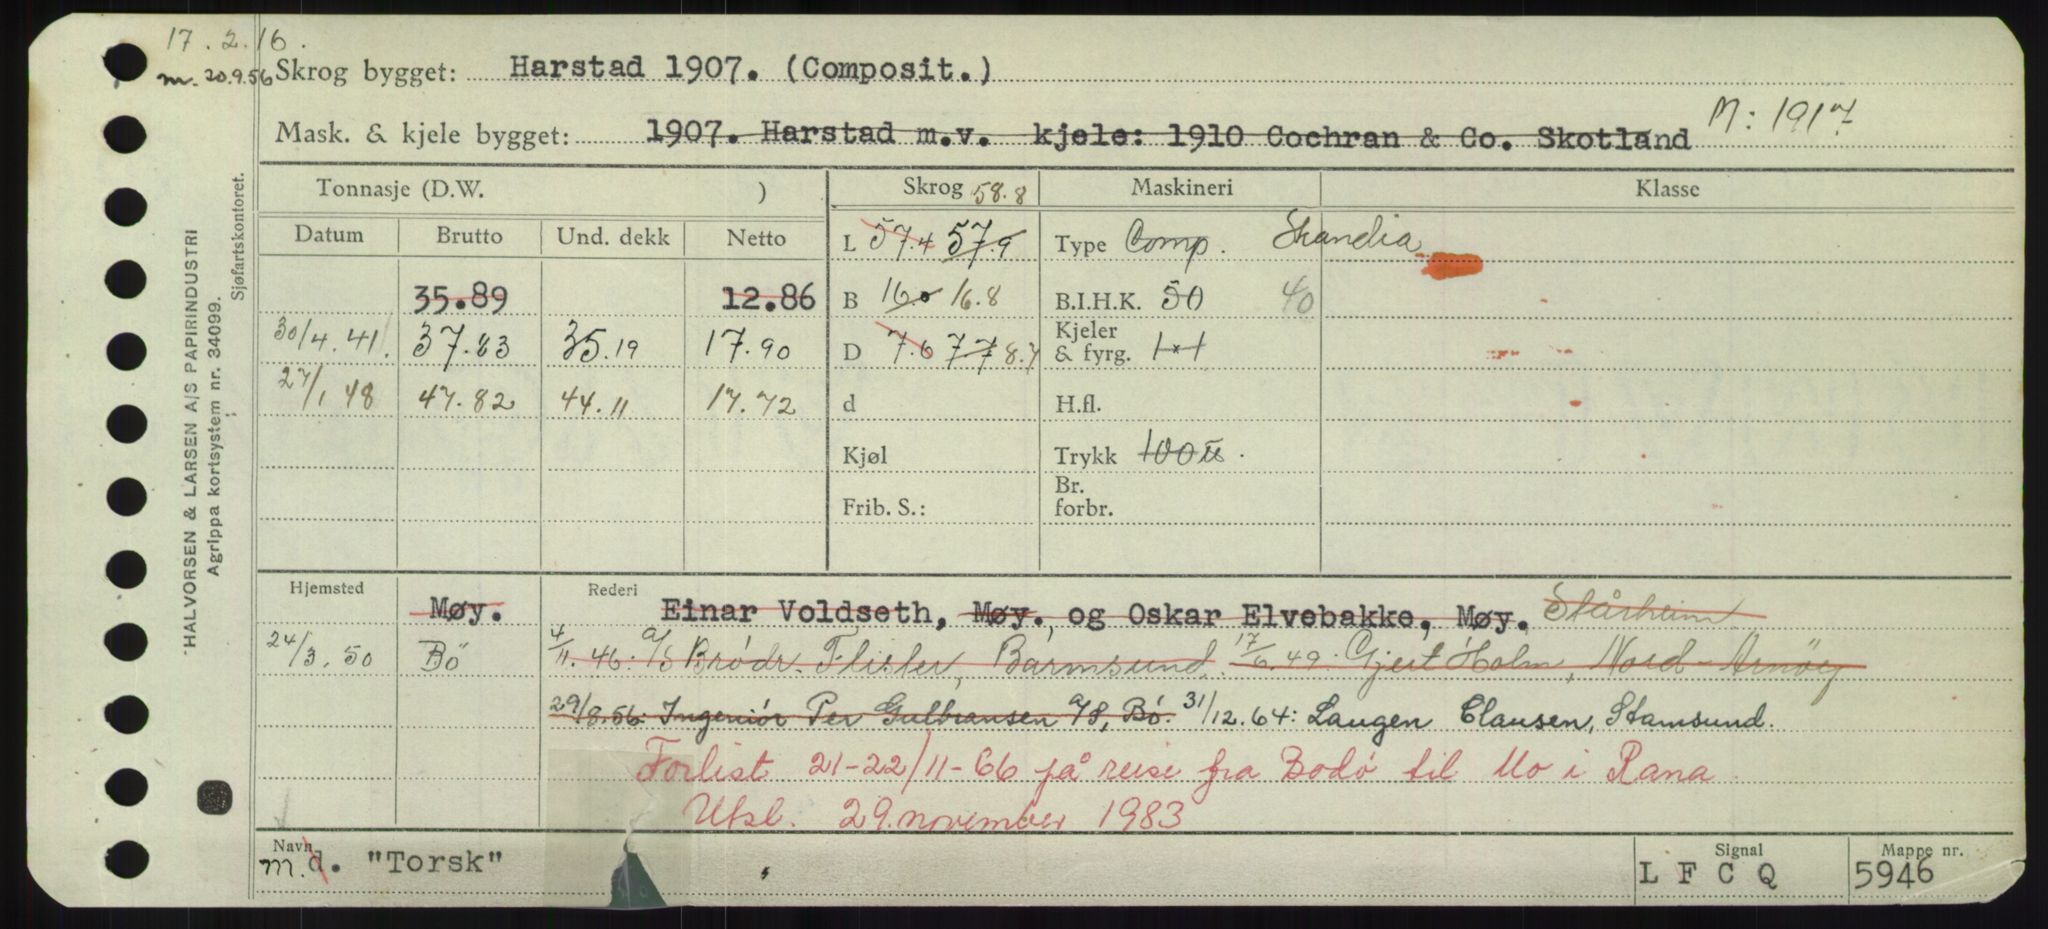 17.2.16.
m. 20.9.56 Skrog bygget: Harstad 1907. (Composit.)
Mask. & kjele bygget: 1907. Harstad m.v. kjele: 1910 Cochran & Co. Skotland M: 1917
Tonnasje (D.W. ) Skrog 58.8 Maskineri Klasse
Datum Brutto Und. dekk Netto L 57.4 57.9 Type Comp. Skandia
35.89 12.86 B 16.0 16.8 B.I.H.K. 50 40
30/4.41. 37.83 35.19 17.90 D 7.6 7.7 8.7 Kjeler & fyrg. 1x1
27/1 48 47.82 44.11 17.72 d H.fl.
Kjøl Trykk 100 ℔.
Frib. S.: Br. forbr.
Hjemsted Møy. Rederi Einar Voldseth, Møy. og Oskar Elvebakke, Møy. Stårheim
24/3.50 Bö 4/11.46. A/S Brödr. Flisler, Barmsund. 17/6.49. Gjert Holm, Nord-Arnöy
29/8.56: Ingeniør Per Gulbransen A/S, Bö. 31/12.64: Laugen Clausen, Stamsund.
Forlist 21-22/11-66 på reise fra Bodø til Mo i Rana.
Utsl. 29. november 1983
Navn m. d. "Torsk" Signal L F C Q Mappe nr. 5946
HALVORSEN & LARSEN A/S PAPIRINDUSTRI
Agrippa kortsystem nr. 34099.
Sjøfartskontoret.